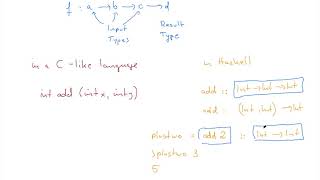 f : a → b → c → d
Input Types
Result Type
in a C-like language
int add (int x, int y)
in Haskell
add :: Int → Int → Int
add : (Int, Int) → Int
plustwo = add 2 :: Int → Int
> plustwo 3
5